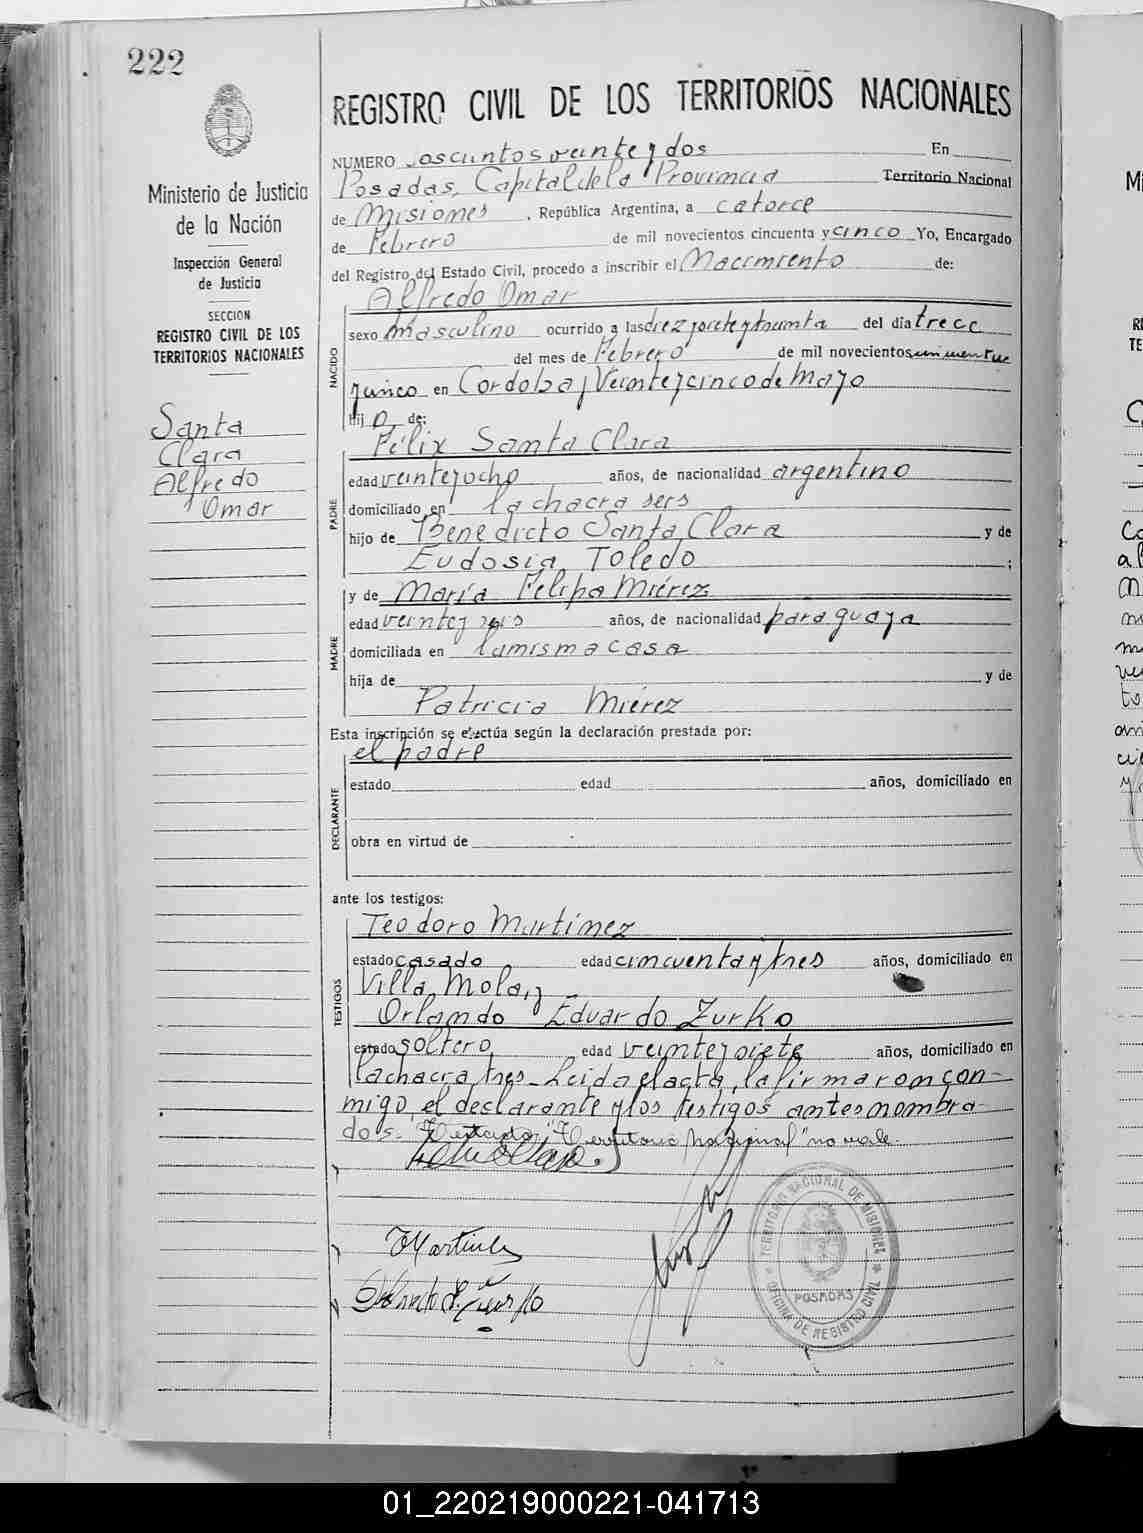 222
Ministerio de Justicia
de la Nación
Inspección General
de Justicia
SECCION
REGISTRO CIVIL DE LOS
TERRITORIOS NACIONALES
Santa
Clara
Alfredo
Omar
REGISTRO CIVIL DE LOS TERRITORIOS NACIONALES
NUMERO doscientos veinte y dos En
Posadas, Capital de la Provincia Territorio Nacional
de Misiones, República Argentina, a catorce
de Febrero de mil novecientos cincuenta y cinco Yo, Encargado
del Registro del Estado Civil, procedo a inscribir el Nacimiento de:
Alfredo Omar
NACIDO
sexo masculino ocurrido a las diez y siete y treinta del día trece
del mes de Febrero de mil novecientos cincuenta
y cinco en Cordoba y Veinte y cinco de Mayo
hijo de:
Félix Santa Clara
PADRE
edad veinte y ocho años, de nacionalidad argentino
domiciliado en la chacra seis
hijo de Benedicto Santa Clara y de
Eudosia Toledo ;
y de María Felipa Miérez
MADRE
edad veinte y seis años, de nacionalidad paraguaya
domiciliada en la misma casa
hija de y de
Patricia Miérez
Esta inscripción se efectúa según la declaración prestada por:
el padre
DECLARANTE
estado edad años, domiciliado en
obra en virtud de
ante los testigos:
Teodoro Martinez
TESTIGOS
estado casado edad cincuenta y tres años, domiciliado en
Villa Mola, y
Orlando Eduardo Zurko
estado soltero edad veinte y siete años, domiciliado en
la chacra tres_ Leida el acta, la firmaron con-
migo, el declarante y los testigos antes nombra-
dos.- Testado: "Territorio Nacional" no vale.
TERRITORIO NACIONAL DE MISIONES
POSADAS
OFICINA DE REGISTRO CIVIL
01_220219000221-041713